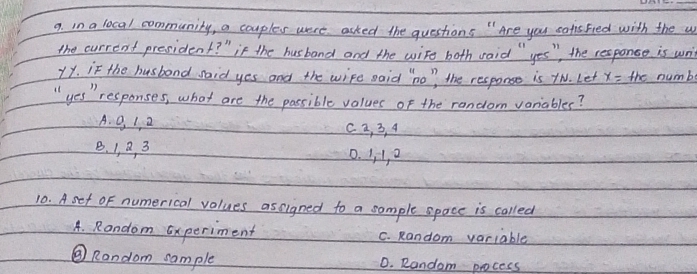 9. in a local community, a couples were asked the questions "Are you satisfied with the w
the current president?" if the husband and the wife both said "yes", the response is wri
YY. if the husband said yes and the wife said "no", the response is YN. Let Y = the numb
"yes" responses, what are the possible values of the random variables?
A. 0, 1, 2 C. 2, 3, 4
B. 1, 2, 3 D. 1, 1, 2
10. A set of numerical values assigned to a sample space is called
A. Random Experiment C. Random variable
B Random sample D. Random process